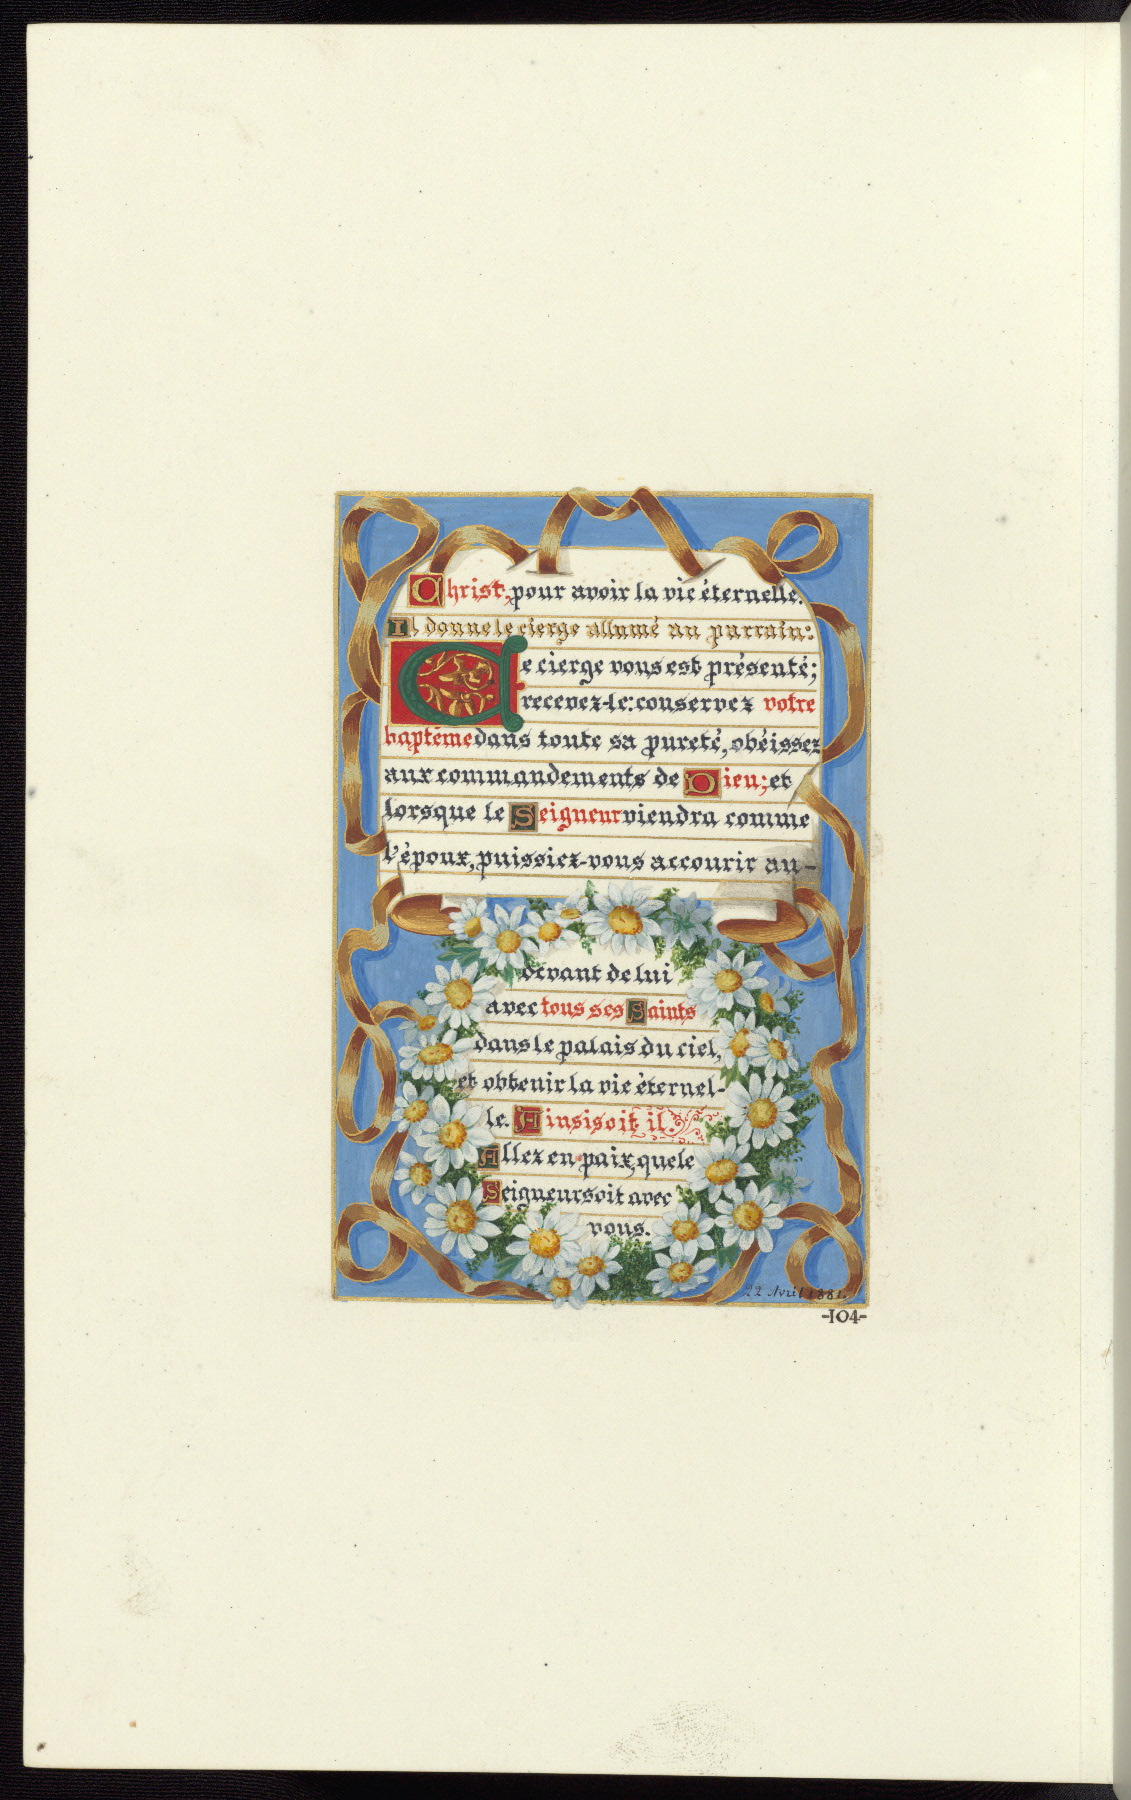 Christ, pour avoir la vie éternelle.
Il donne le cierge allumé au parrain:
Ce cierge vous est présenté;
recevez-le: conservez votre
baptême dans toute sa pureté, obéissez
aux commandements de Dieu; et
lorsque le Seigneur viendra comme
l'époux, puissiez-vous accourir au-
devant de lui
avec tous ses Saints
dans le palais du ciel,
et obtenir la vie éternel-
le. Ainsi soit il.
Allez en paix, que le
Seigneur soit avec
vous.
22 Avril 1881.
-104-